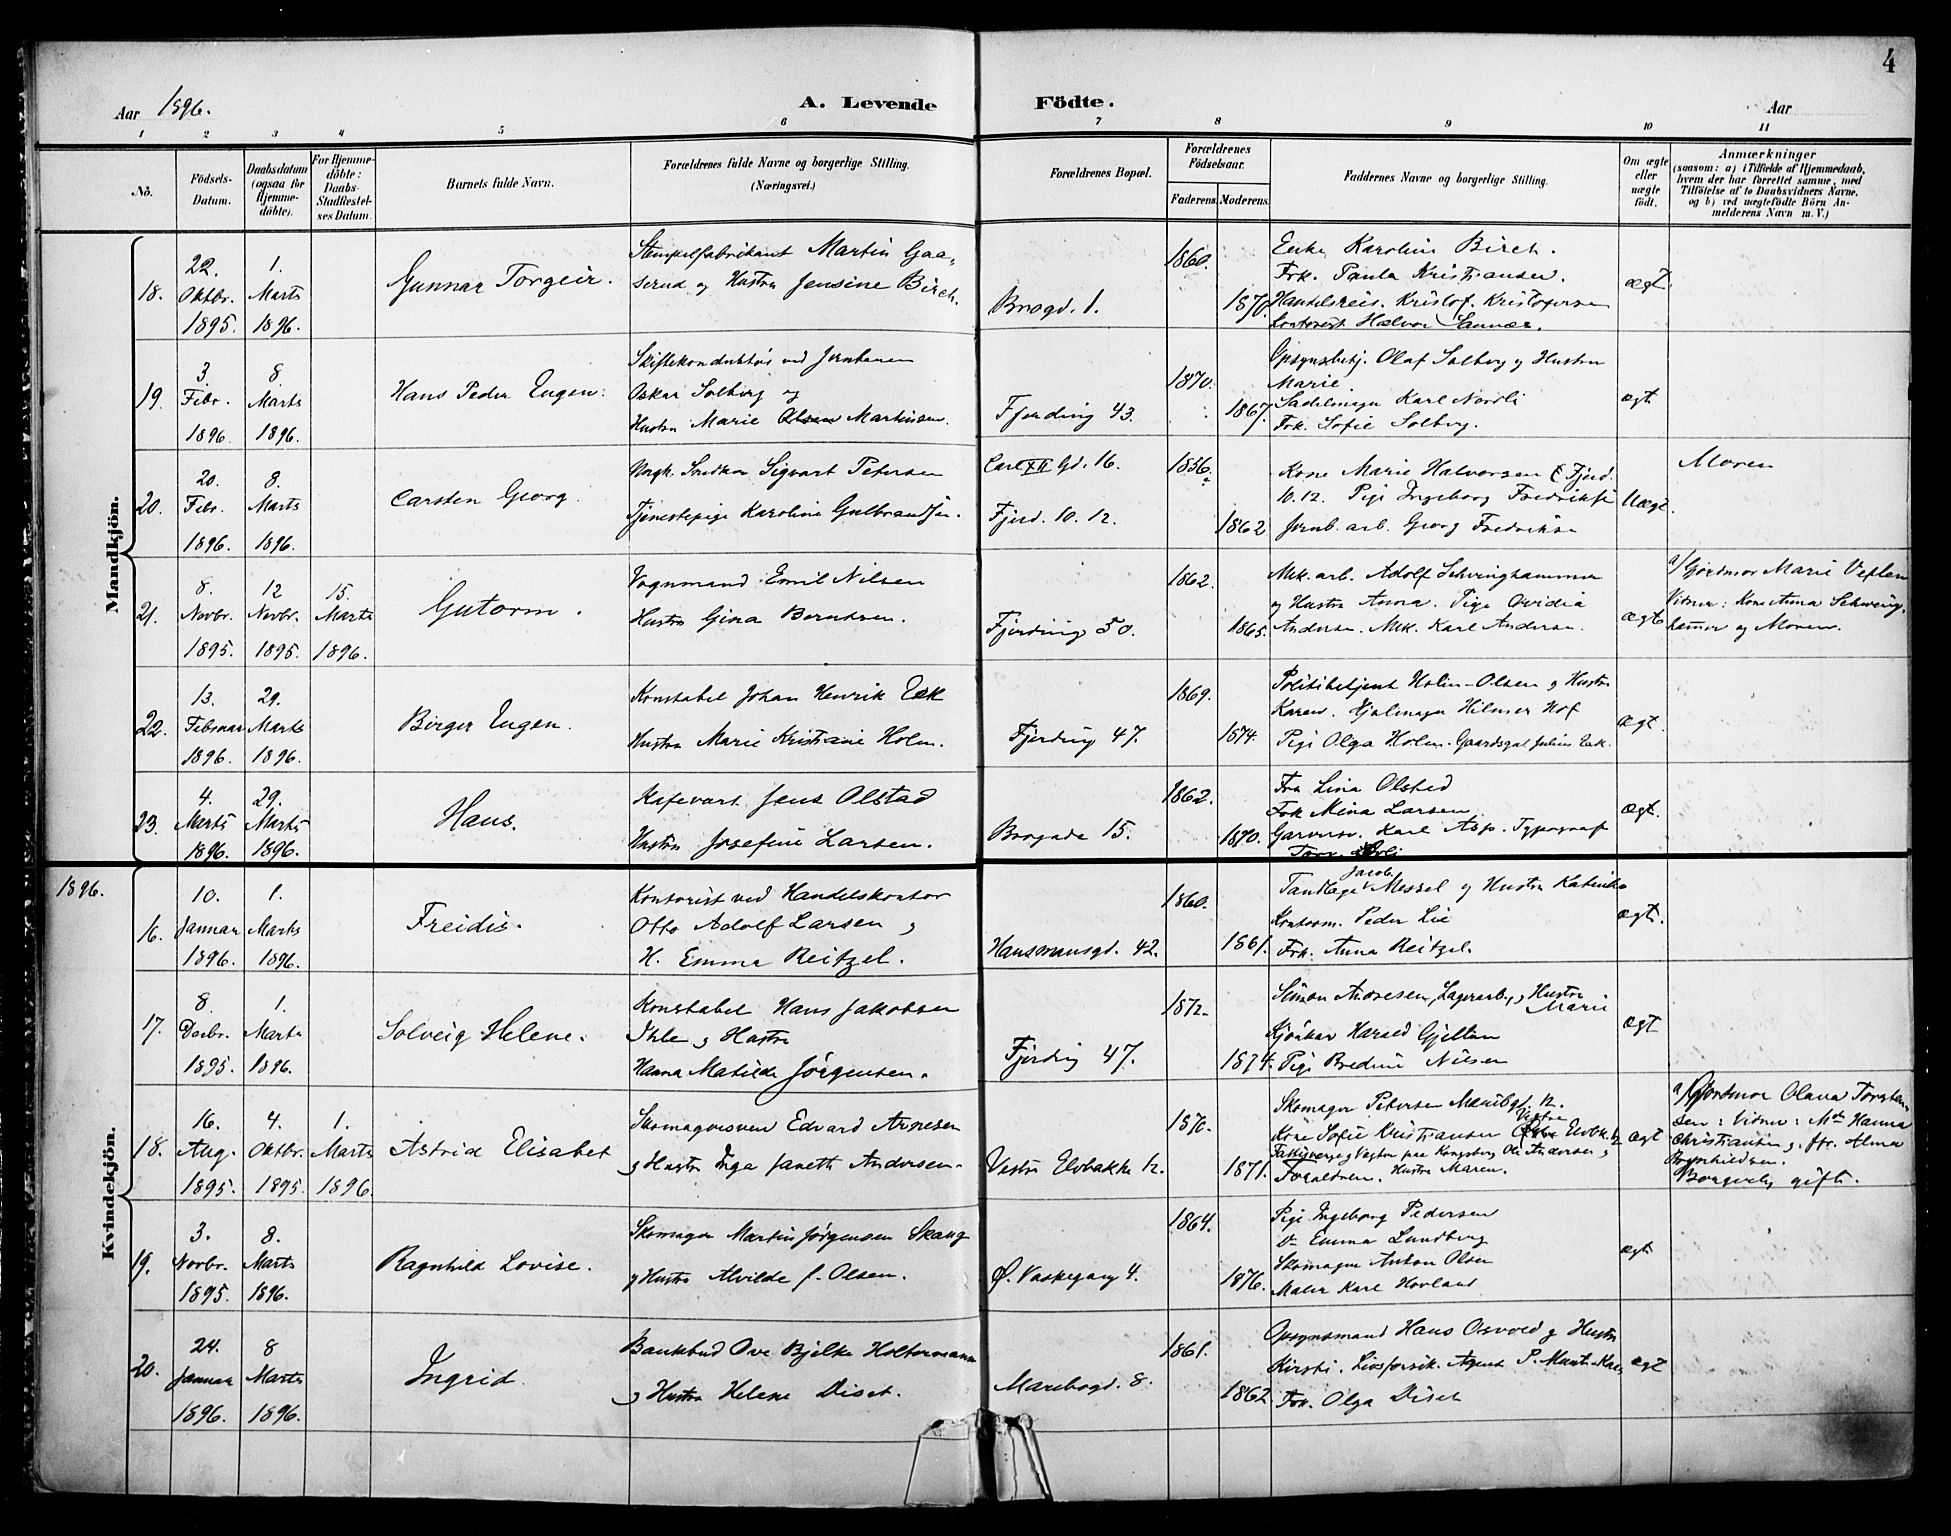 4
Aar 1896.
A. Levende Födte.
Aar
1 2 3 4 5 6 7 8 9 10 11
No.
Födsels-Datum.
Daabsdatum (ogsaa for Hjemme-döbte).
For Hjemme-döbte: Daabs-Stadfestel-ses Datum.
Barnets fulde Navn.
Forældrenes fulde Navne og borgerlige Stilling. (Næringsvei.)
Forældrenes Bopæl.
Forældrenes Födselsaar.
Faderens. Moderens.
Faddernes Navne og borgerlige Stilling.
Om ægte eller uægte födt.
Anmærkninger
(saasom: a) i Tilfælde af Hjemmedaab,
hvem der har forrettet samme, med
Tilföielse af to Daabsvidners Navne,
og b) ved uægtefödte Börn An-
melderens Navn m. V.)
Mandkjön.
18. 22. Oktbr. 1895. 1. Marts 1896.
Gunnar Torgeir.
Stempelfabrikant Martin Gaa-
serud og Hustru Jensine Birch.
Brogd. 1.
1860. 1870.
Enke Karoline Birch.
Frk. Paula Kristiansen.
Handelsreis. Kristof. Kristofersen
Kontorist Halvor Sannær.
ægt.
19. 3. Febr. 1896. 8. Marts 1896.
Hans Peder Eugen.
Skiftekonduktör ved Jernbanen
Oskar Solberg og
Hustru Marie Olsen Martinsen.
Fjerding 43.
1870. 1867.
Opsynsbetj. Olaf Solberg og Hustru
Marie.
Sadelmager Karl Nordli
Frk. Sofie Solberg.
ægt.
20. 20. Febr. 1896. 8. Marts 1896.
Carsten Georg.
Sigvart Petersen
Tjenestepige Karoline Gulbrandsen.
Carl XII Gd. 16.
Fjerd. 10. 12.
1856. 1862
Kone Marie Halvorsen Fjerd.
10. 12. Pige Ingeborg Fredriksen
Jernb. arb. Georg Fredriksen
Uægt.
Moren
21. 8. Novbr. 1895. 12 Novbr. 1895. 15. Marts 1896.
Gutorm.
Vognmand Emil Nilsen
Hustru Gina Berntsen.
Fjerding 50.
1862. 1865.
Mek. arb. Adolf Schwinghammer
og Hustru Anna. Pige Ovidia
Andersen. Mek. Karl Andersen.
ægte
a/ Gjordmor Marie Veflen
Vidner: Kone Anna Schwing-
hamer og Moren.
22. 13. Februar 1896. 29. Marts 1896.
Birger Eugen.
Konstabel Johan Henrik Eek
Hustru Marie Kristiane Holm.
Fjerding 47.
1869. 1874.
Politibetjent Holm-Olsen og Hustru
Karen. Hjulmager Hilmer Hof
Pige Olga Holm. Gaardsgut Julius Eek.
ægt.
23. 4. Marts 1896. 29. Marts 1896.
Hans.
Kafevært Jens Olstad
Hustru Josefine Larsen.
Brogade 15.
1862. 1870.
Fru Lina Olsted
Frk Mina Larsen
Garversv. Karl Asp. Typograf
ægt.
1896.
Kvindekjön.
16. 10. Januar 1896. 1. Marts 1896.
Freidis.
Kontorist ved Handelskontor
Otto Adolf Larsen og
H. Emma Reitzel.
Hansmansgd. 42.
1860. 1861.
Tandlæge Jacob Messel og Hustru Katinka
Kontorm. Peder Lie
Frk. Anna Reitzel.
ægt.
17. 8. Decbr. 1895. 1. Marts 1896.
Solveig Helene.
Konstabel Hans Jakobsen
Ihle og Hustru
Hanna Matilde Jørgensen.
Fjerding 47.
1872. 1874.
Simon Andresen, Lagerarb. og Hustru
Marie
Harald Gjeltun
Pige Bredine Nilsen
ægt
18. 16. Aug. 1895. 4. Oktbr. 1895. 1. Marts 1896
Astrid Elisabet
Skomagersvend Edvard Arnesen
og Hustru Inga Janette Andersen.
Vestre Elvbakke 12.
1870. 1871.
Skomager Petersen Møllebgd. 12.
Kone Sofie Kristiansen Vestre Elvbk. 12
Ole Andersen og
Forældren. Hustru Maren.
ægt
a/ Gjordmor Olava Torsten-
sen: Vidner: Hanna
Christiansen og fr. Alma
Borgerlig gift.
19. 3. Novbr. 1895. 8. Marts 1896.
Ragnhild Lovise.
Skomager Martin Jørgensen Skaug
og Hustru Alvilde f. Olsen.
Ø. Vaskegang 4.
1864. 1876.
Pige Ingeborg Pedersen
Do Emma Lundberg
Skomager Anton Olsen
Maler Karl Hovland
ægt
20. 24. Januar 1896. 8 Marts 1896.
Ingrid.
Bankbud Ove Bjelke Holtermann
og Hustru Helene Diset.
Marebogd. 8.
1861. 1862
Opsynsmand Hans Osvold og Hustru
Kirsti. Livsforsik. Agent
Frk. Olga Diset
ægt